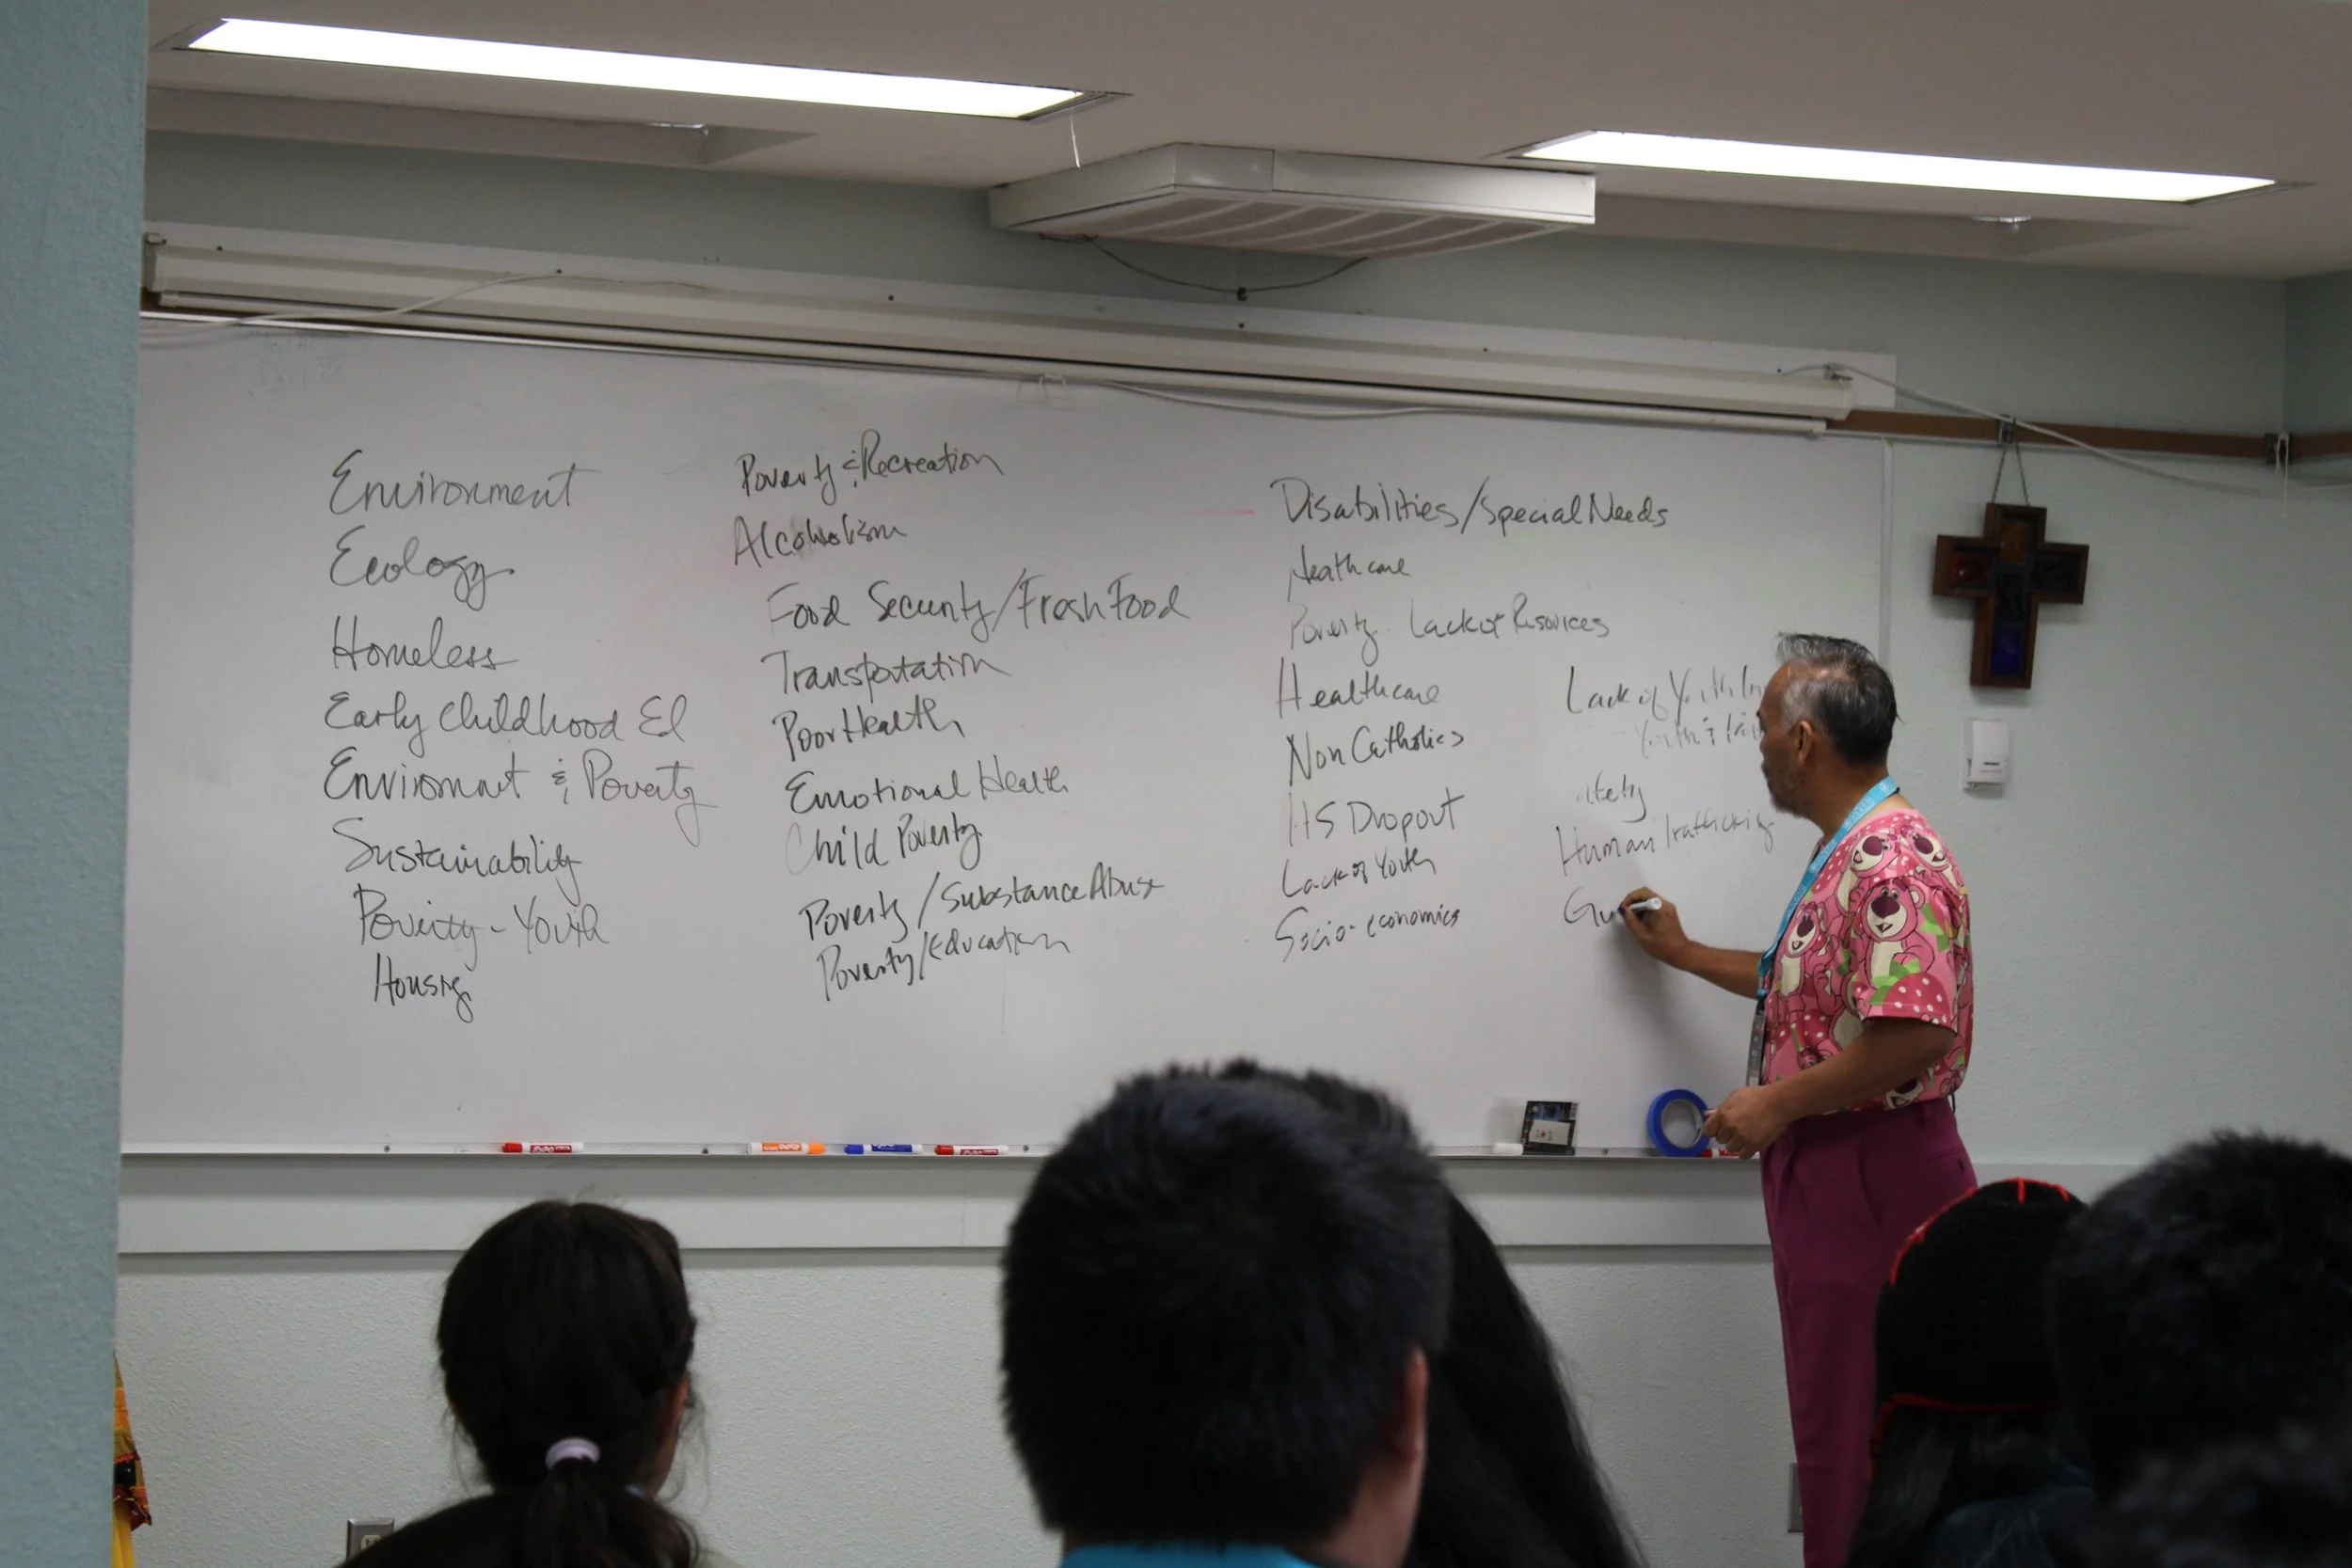 Environment
Ecology
Homeless
Early Childhood Ed
Enviromnt & Poverty
Sustainability
Poverty - Youth
Housing
Poverty & Recreation
Alcoholism
Food Security/Fresh Food
Transportation
Poor Health
Emotional Health
Child Poverty
Poverty/Substance Abuse
Poverty/Education
Disabilities/Special Needs
Healthcare
Poverty - Lack of Resources
Healthcare
Non Catholics
HS Dropout
Lack of Youth
Socio-economics
Lack of Youth In
Youth &
afety
Human Trafficking
Gu